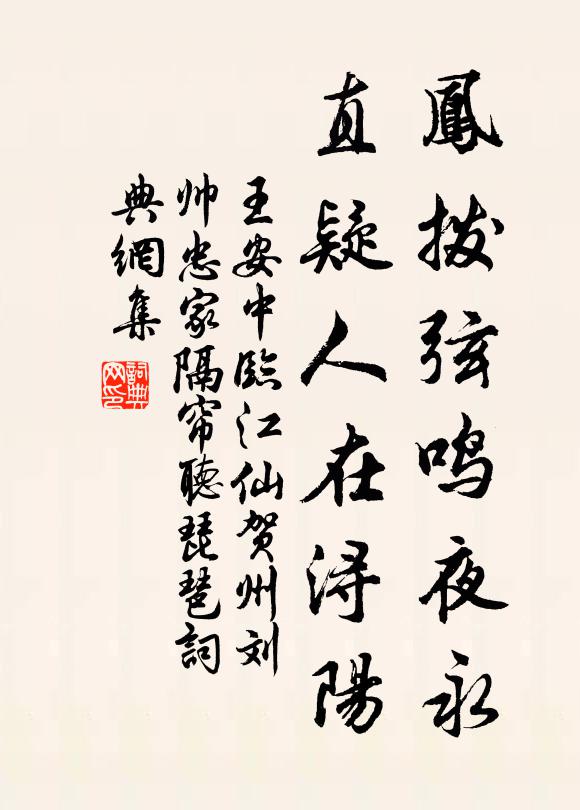 鳳拨弦鸣夜永
直疑人在浔陽
王安中臨江仙贺州刘
帅忠家隔帘聽琵琶詞
典網集
詞典网印